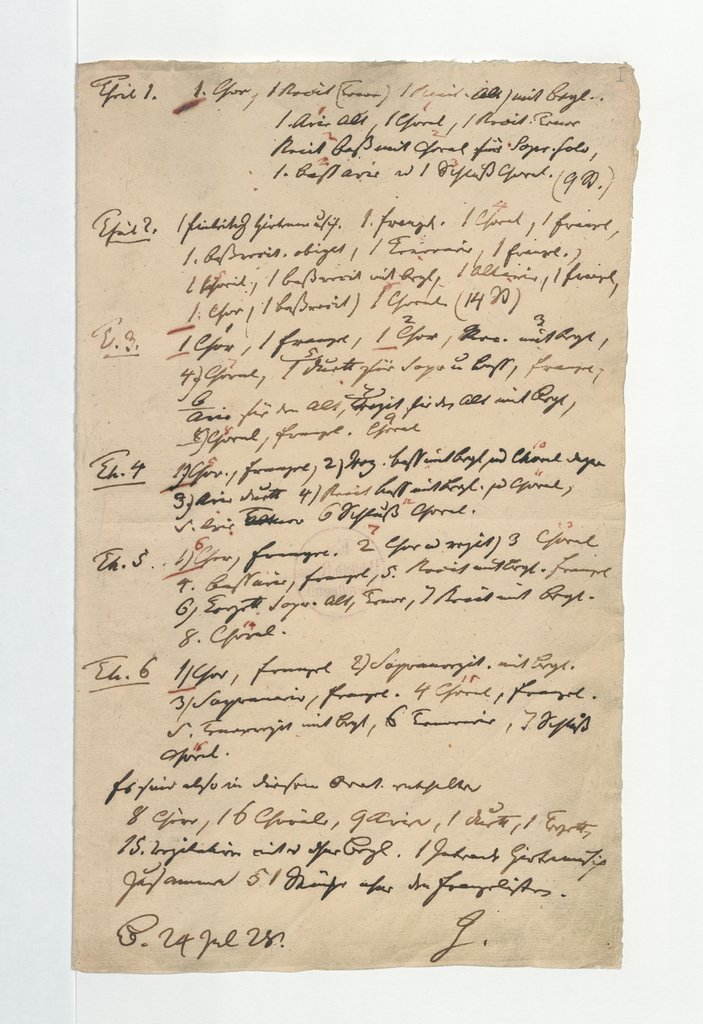 I
Theil 1. 1. Chor, 1 Recit (Tenor) 1 Recit. Alt) mit Begl..
1. Arie Alt, 1 Choral, 1 Recit. Tenor
Recit Baß mit Choral für Sopr. solo,
1. Baß arie u 1 Schluß Choral. (9 St.)
Theil 2. 1 Hirtenmusik. 1. Evangel. 1 Choral, 1 Evangel,
1. Baßrecit. obligat, 1 Tenorarie, 1 Evangel.,
1 Choral, 1 Baßrecit mit Begl, 1 Altarie, 1 Evangel,
1. Chor, (1 Baßrecit) 1 Choral (14 St)
Th. 3. 1 Chor, 1 Evangel, 1 Chor, Rec. mit Begl,
4) Choral, 1 Duett für Sopr u Bass, Evangel,
6 Arie für den Alt, Rezit für den Alt mit Begl,
8) Choral, Evangel. Choral
Th. 4 1) Chor., Evangel, 2) Rez. Bass mit Begl u Choral
3) Arie 4) Recit Bass mit Begl. u Choral,
5. Arie Tenor 6 Schluß Choral.
Th. 5. 1) Chor, Evangel. 2 Chor u rezit) 3 Choral
4. Bass arie, Evangel, 5. Recit mit Begl. Evangel
6) Terzett Sopr. Alt, Tenor, 7 Recit mit Begl.
8. Choral.
Th. 6 1) Chor, Evangel 2) Sopranrezit. mit Begl.
3) Sopranarie, Evangel. 4 Choral, Evangel.
5. Tenorrezit mit Begl, 6 Tenorarie, 7 Schluß
Choral.
Es sind also in diesem Orat. enthalten
8 Chöre, 16 Choräle, 9 Arien, 1 Duett, 1 Terzett,
15. Rezitative mit u ohne Begl. 1 Hirtenmusik
zusammen 51 Stücke ohne den Evangelisten.
B. 24 Jul 28. G.